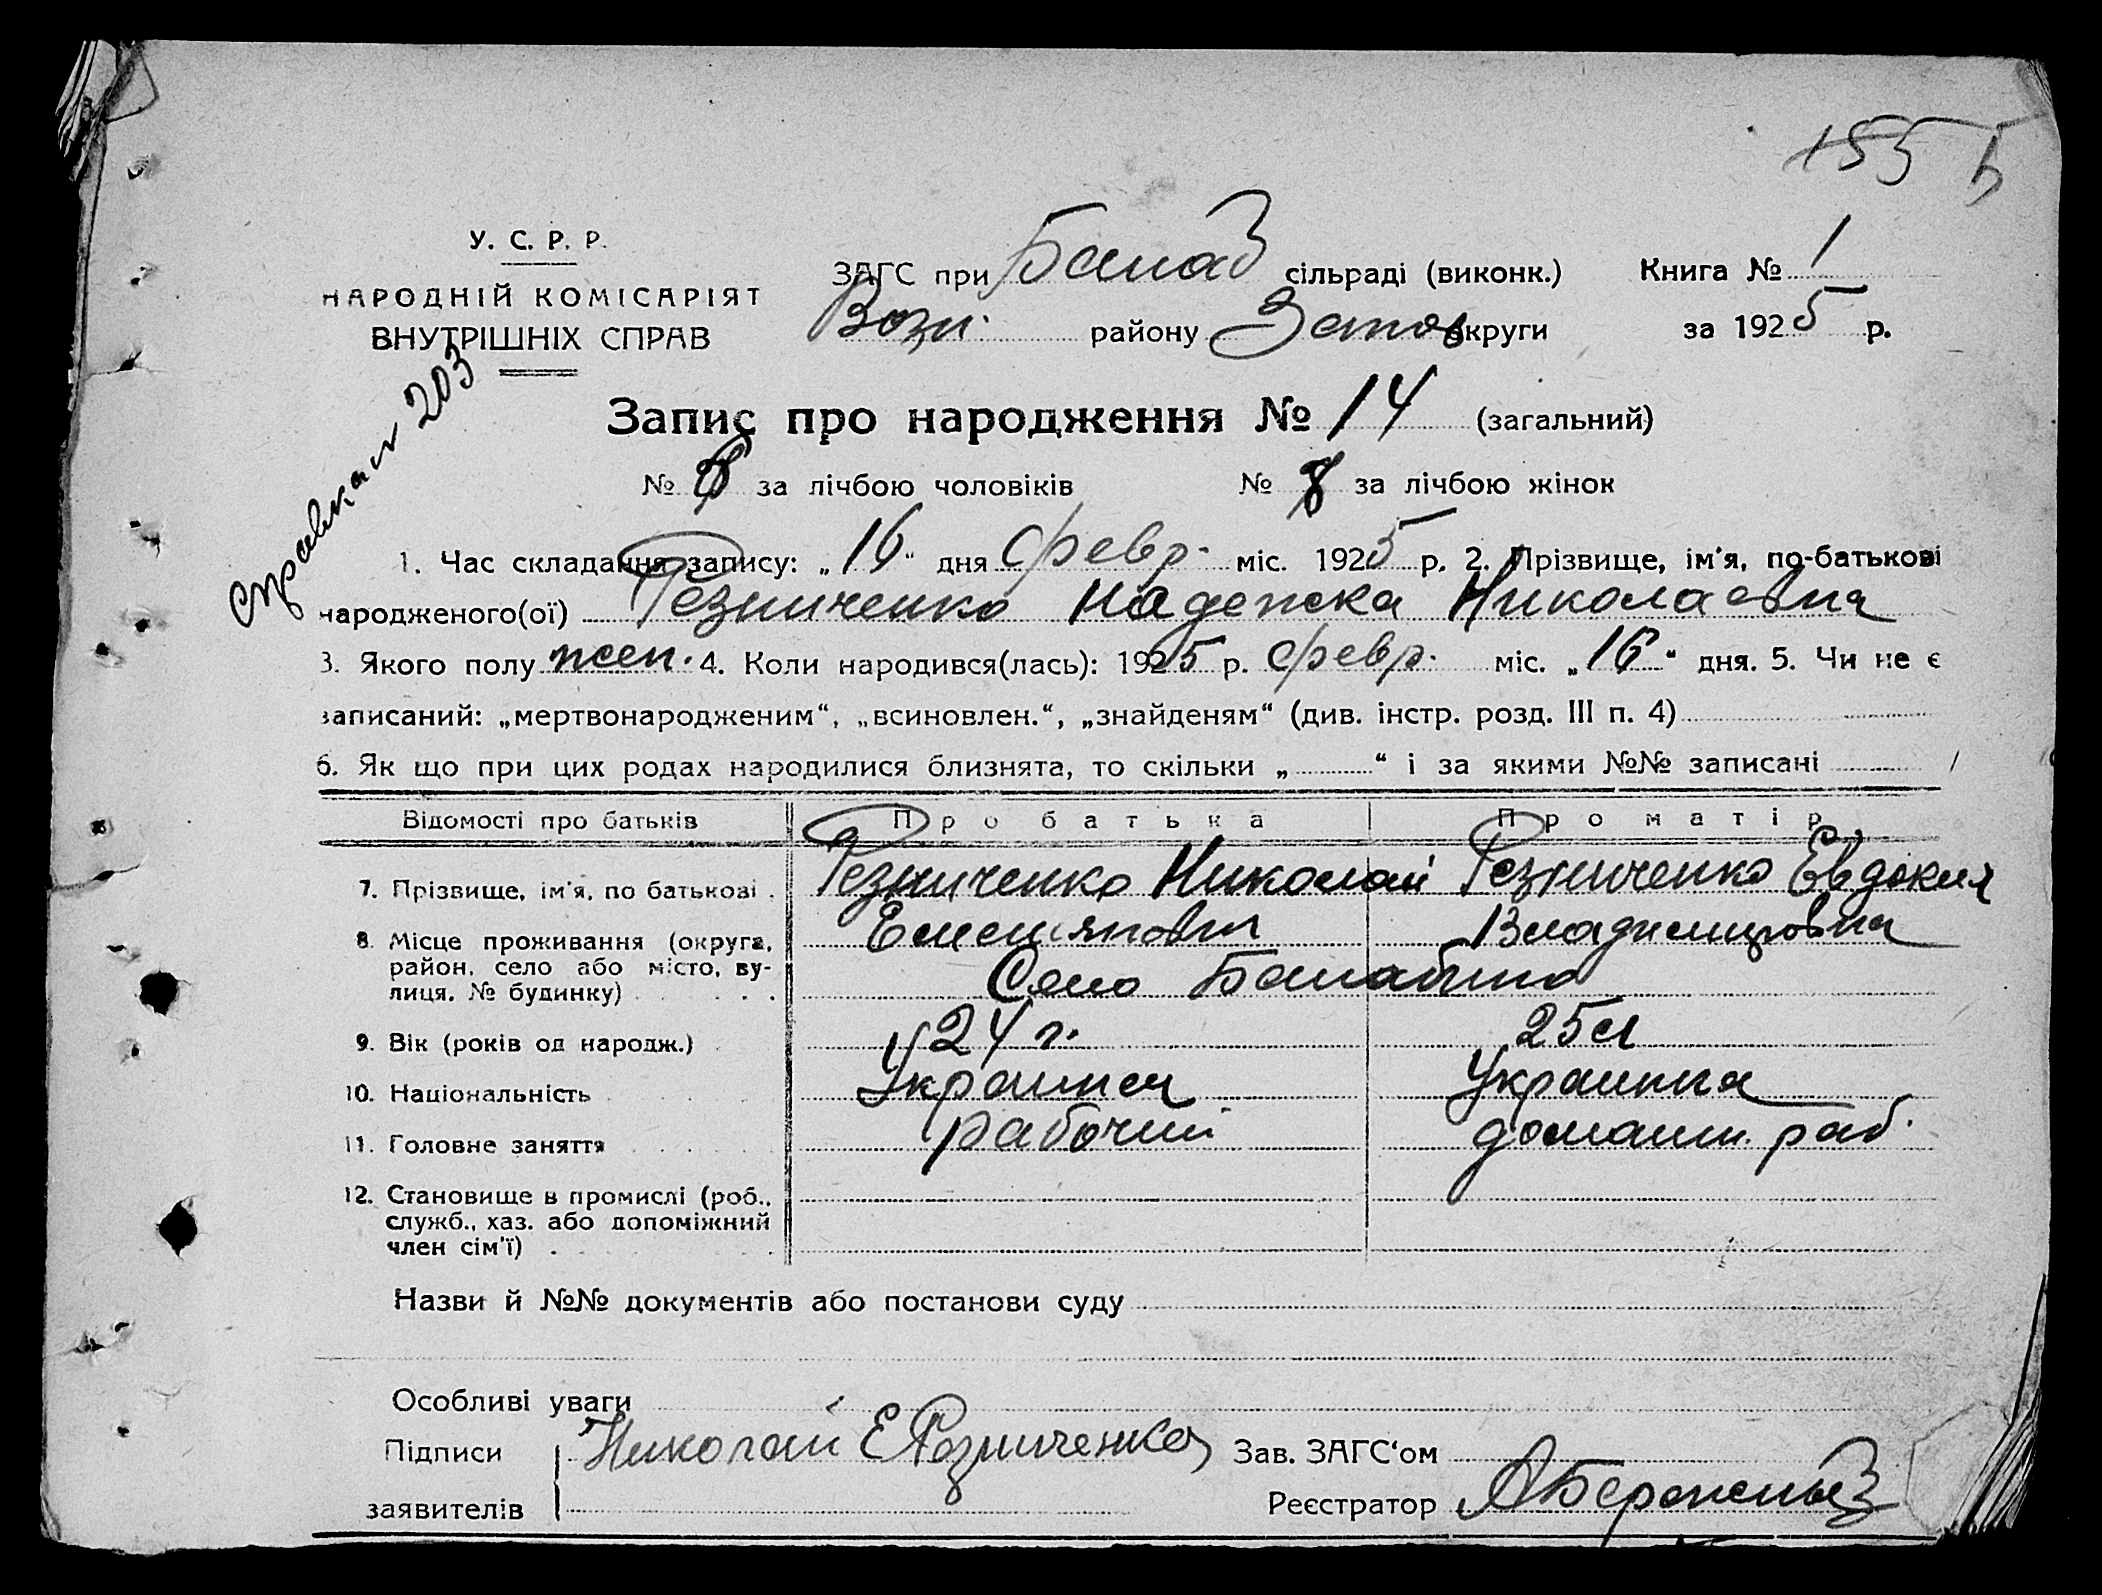 155 Б
У. С. Р. Р.
НАРОДНІЙ КОМІСАРІЯТ
ВНУТРІШНІХ СПРАВ
ЗАГС при Балаб сільраді (виконк.) Книга № 1
Возн. району Запов округи за 1925 р.
Справка 203
Запис про народження № 14 (загальний)
№ за лічбою чоловіків № 8 за лічбою жінок
1. Час складання запису: „16" дня февр. міс. 1925 р. 2. Прізвище, ім'я, по-батькові
народженого(ої) Резниченко Надежка Николаевна
3. Якого полу жен. 4. Коли народився(лась): 1925 р. февр. міс. „16" дня. 5. Чи не є
записаний: „мертвонародженим", „всиновлен.", „знайденям" (див. інстр. розд. III п. 4)
6. Як що при цих родах народилися близнята, то скільки „ " і за якими №№ записані
Відомості про батьків Про батька Про матір
7. Прізвище, ім'я, по батькові Резниченко Николай Резниченко Евдокия
8. Місце проживання (округа, Емельянович Владимировна
район, село або місто, ву-
лиця, № будинку) Село Балабино
9. Вік (років од народж.) 24 г. 25 л
10. Національність Украинец Украинка
11. Головне заняття рабочий домашн. раб.
12. Становище в промислі (роб.,
служб., хаз. або допоміжний
член сім'ї)
Назви й №№ документів або постанови суду
Особливі уваги
Підписи Николай Е Резниченко Зав. ЗАГС'ом
заявителів Реєстратор